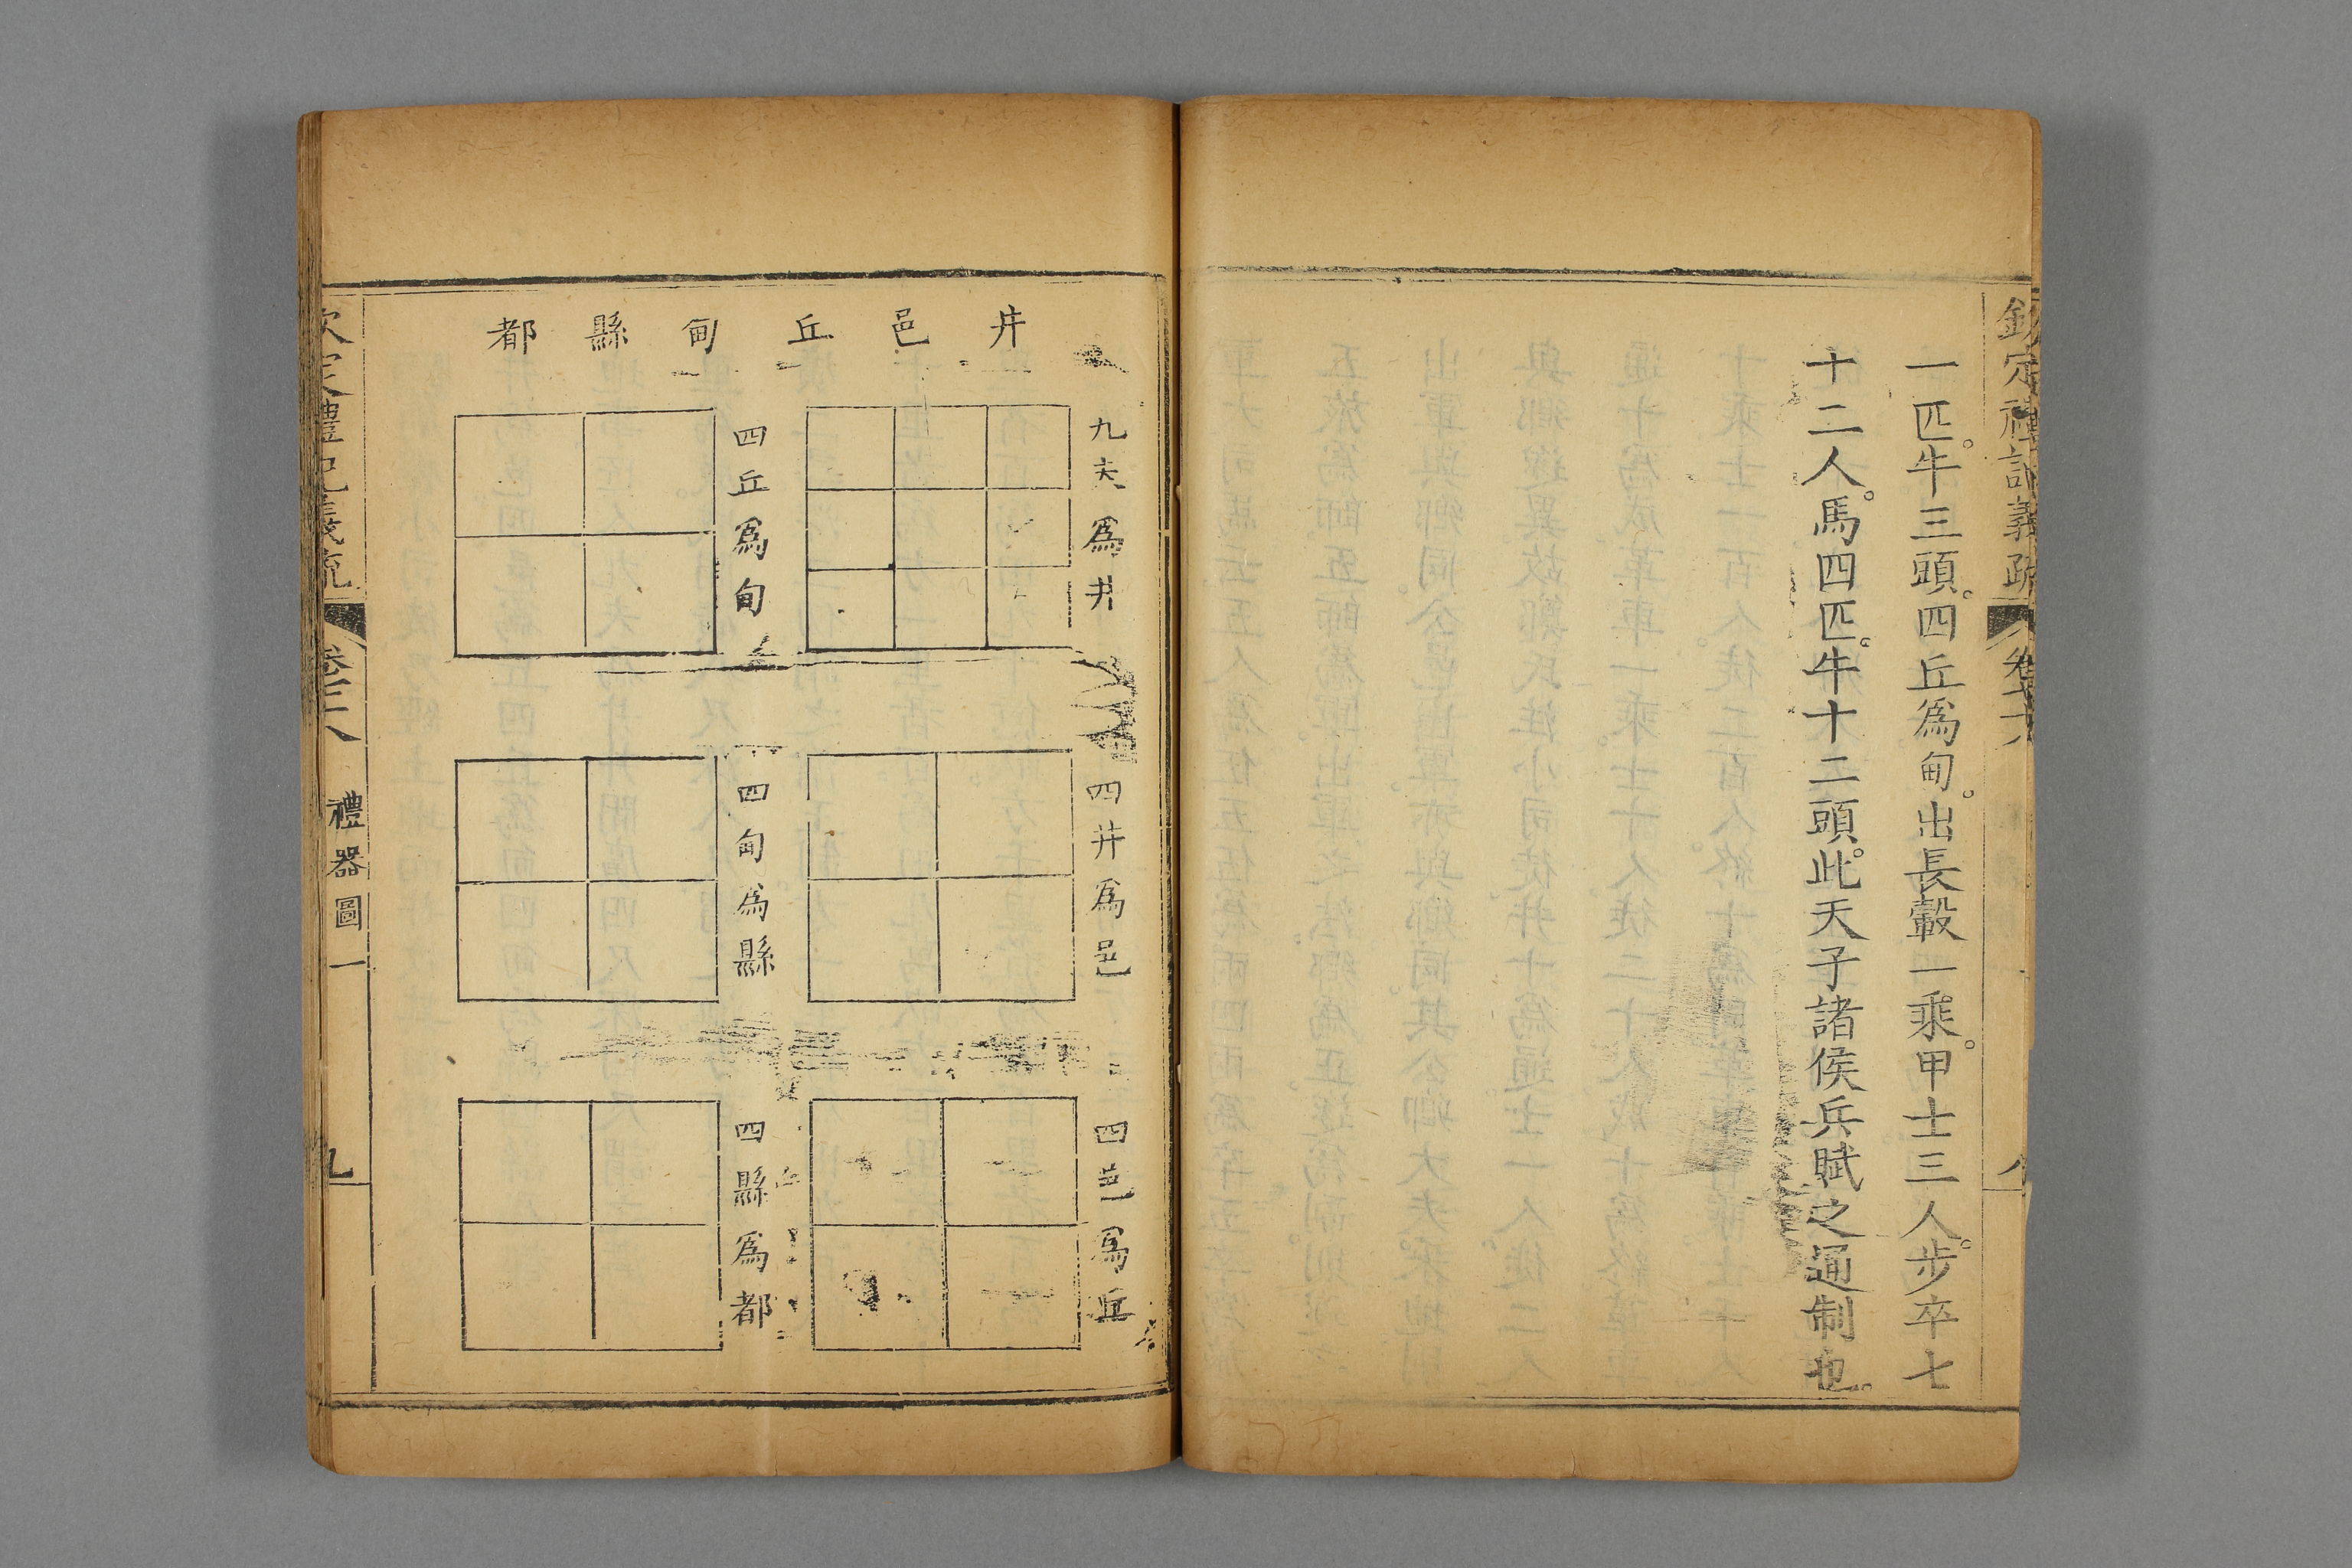 欽定禮記義疏 卷
一匹。牛三頭。四丘爲甸。出長轂一乘。甲士三人。步卒七
十二人。馬四匹。牛十二頭。此天子諸侯兵賦之通制也。
井邑丘甸縣都
九夫爲井
四井爲邑
四邑爲丘
四丘爲甸
四甸爲縣
四縣爲都
禮記義疏 卷 禮器圖一 九